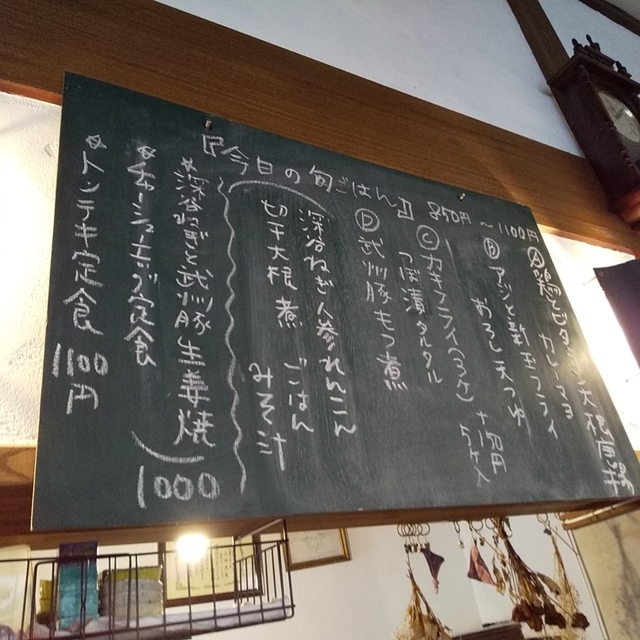 『今日の旬ごはん』 850円〜1100円
Ⓐ鶏とビタミン大根旨揚
カレーマヨ
Ⓑアジと新玉フライ
おろし天つゆ
Ⓒカキフライ(3ケ)
つぼ漬タルタル
+150円
5ケ入
Ⓓ武州豚もつ煮
深谷ねぎ人参れんこん
切干大根煮 ごはん
みそ汁
*深谷ねぎと武州豚生姜焼
*チャーシューエッグ定食
1000
*トンテキ定食 1100円